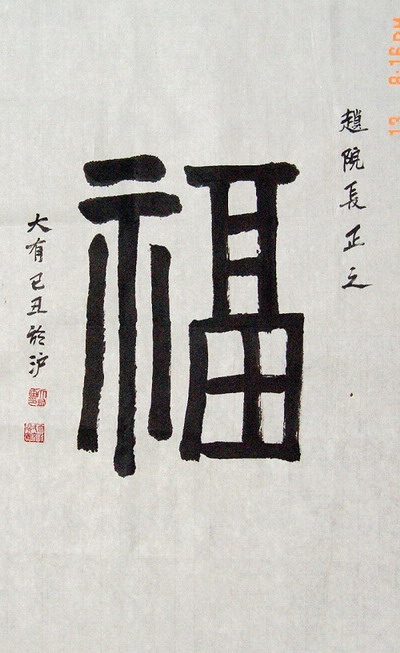 趙院長正之
福
大有己丑於沪
13 8:16PM